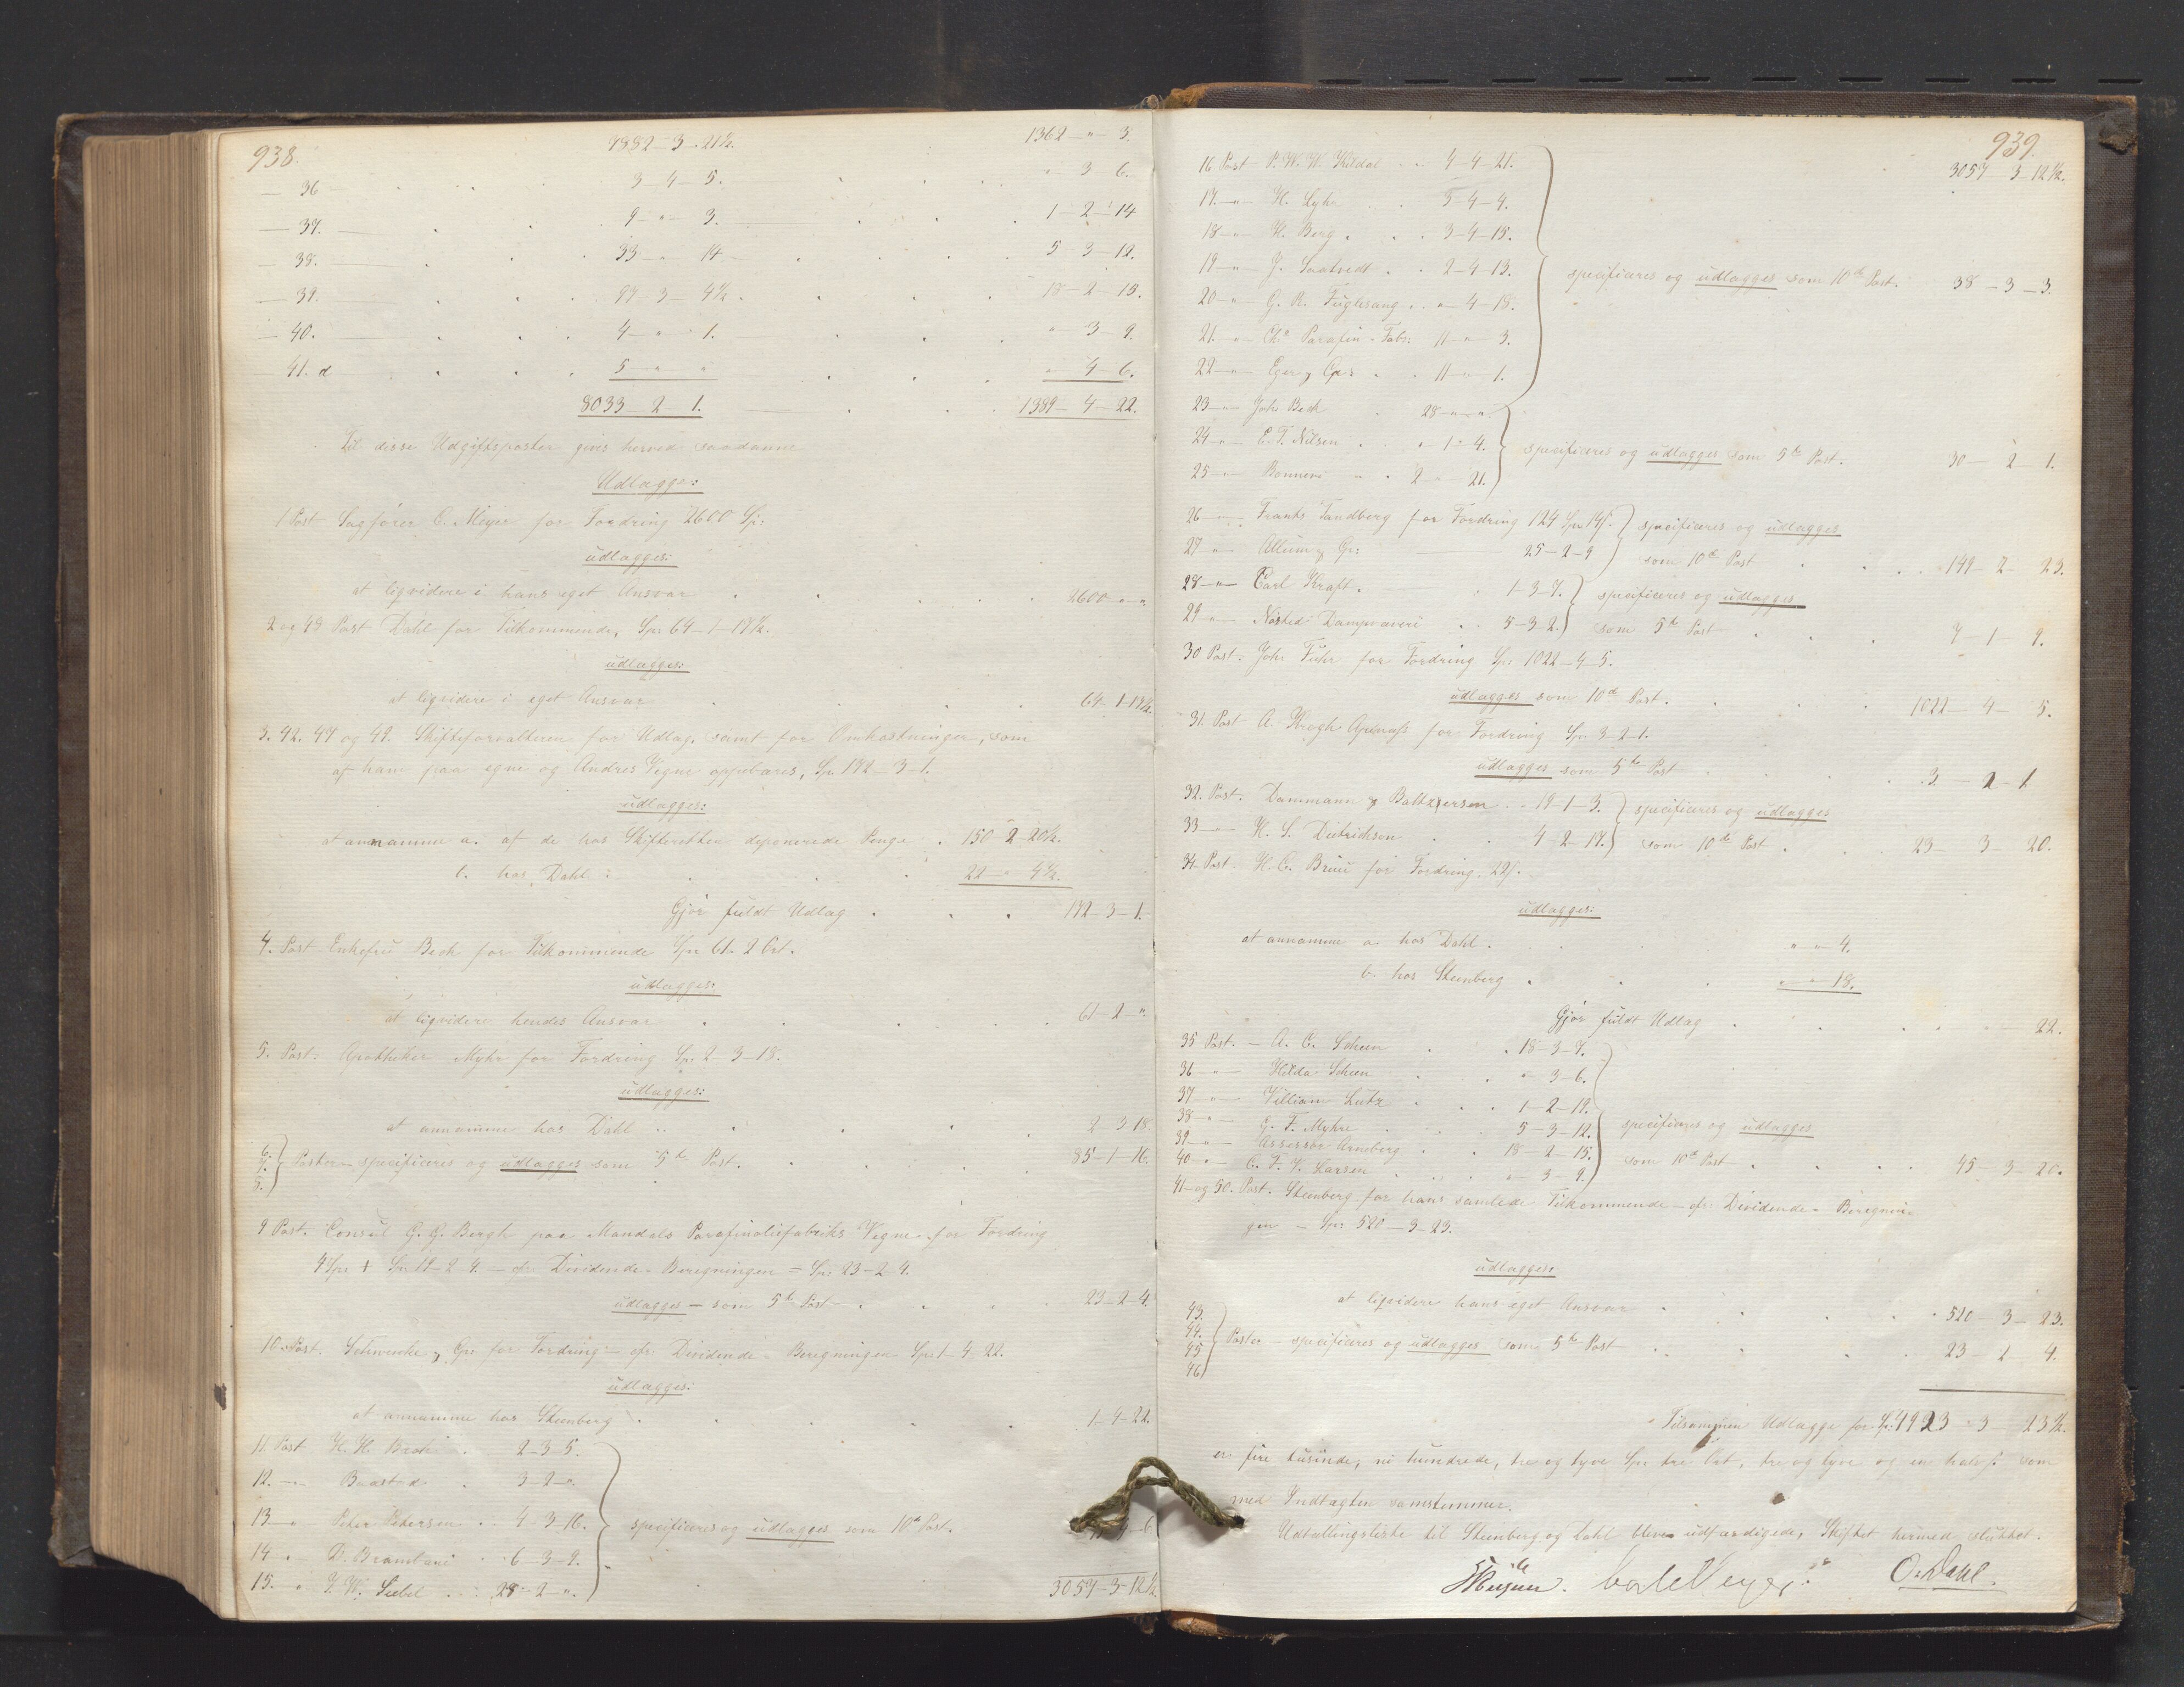 938.
7882-3-21½. 1362 " 3.
— 36 — 3-4-5. " 3-6.
— 37. — 9-"-3. 1-2-14
— 38. — 33-"-14 5-3-12.
— 39. 97-3-4½. 18-2-15.
— 40. 4-"-1. " 3-9.
— 41. d 5-"-" " 4-6.
8033-2-1. 1389-4-22.
Til disse Udgiftsposter gives herved saadanne
Udlægge:
1 Post Sagfører C. Meyer for Fordring 2600 Sp:
udlægges:
at liqvidere i hans eget Ansvar 2600 " "
2 og 48 Post Dahl for Tilkommende, Spr 64-1-17½.
udlægges:
at liqvidere i eget Ansvar 64-1-17½.
3. 42. 47 og 49. Skifteforvalteren for Udlæg, samt for Omkostninger, som
af ham paa egne og Andres Vegne oppebæres, Spr 172-3-1.
udlægges:
at annamme a. af de hos Skifteretten deponerede Penge 150-2-20½.
b. hos Dahl : 22-"-4½.
Gjør fuldt Udlæg 172-3-1.
4. Post Enkefru Bech for Tilkommende Spr 61-2 Ort.
udlægges:
at liqvidere hendes Ansvar 61-2-".
5. Post: Apotheker Myhr for Fordring Sp: 2-3-18.
udlægges:
at annamme hos Dahl 2-3-18
6.
7.
8. } Poster - specificeres og udlægges som 5te Post. 85-1-16.
9 Post. Consul G. G. Bergh paa Mandals Parafinoliefabriks Vegne for Fordring
4 Spr + Spr 19-2-4. - cfr Dividende-Beregningen = Sp: 23-2-4.
udlægges - som 5te Post 23-2-4.
10. Post. Schwencke & Cp: for Fordring - cfr Dividende-Beregningen Spr 1-4-22.
udlægges:
at annamme hos Steenberg 1-4-22.
11. Post H. H. Bach 2-3-5.
12. -"- Baastad 3-2-".
13 -"- Peter Petersen 4-3-16. } specificeres og udlægges som 10de Post. 4-6.
14 " D. Brambani 6-3-9.
15. " J. W. Siebel 28-2-". 3057-3-12½
939.
16 Post P. W. W. Kildal 4-4-21. 3057-3-12½.
17. -"- H. Lyhr 5-4-4.
18 -"- H. Berg 3-4-15.
19 -"- J. Saatvedt 2-4-13. specificeres og udlægges som 10de Post. 38-3-3.
20 -"- G. R. Fuglesang " 4-18.
21. -"- Chr. Parafin-Fabr: 11-"-3.
22 -"- Eger & Cp:s 11-"-1.
23 -"- Joh: Bech 28-"-".
24 -"- E. T. Nilsen " 1-4. } specificeres og udlægges som 5te Post. 30-2-1.
25 -"- Bonnevi 2-"-21.
26 -"- Frants Tandberg for Fordring 124 Spr 14 s. } specificeres og udlægges
27 -"- Allum & Cp: 25-2-9 } som 10de Post 149-2-23.
28 -"- Carl Kraft. 1-3-7. } specificeres og udlægges
29 -"- Nøsted Dampvæveri 5-3-2. } som 5te Post 7-1-9.
30 Post: Joh: Fuhr for Fordring Sp: 1022-4-5.
udlægges som 10de Post. 1022-4-5.
31. Post A. Krogh Apenæss for Fordring Spr 3-2-1.
udlægges som 5te Post 3-2-1
32. Post. Dammann & Baltzersen 19-1-3. } specificeres og udlægges
33 -"- H. S. Dietrichson 4-2-17. } som 10de Post 23-3-20.
34. Post. H. C. Bruu for Fordring 22 s.
udlægges:
at annamme a. hos Dahl " " 4.
b. hos Steenberg " " 18.
Gjør fuldt Udlæg 22.
35 Post. - A. C. Scheen 18-3-7.
36 -"- Hilda Scheen " 3-6.
37 -"- William Lutz 1-2-19.
38 " G. F. Myhre 5-3-12. } specificeres og udlægges
39 -"- Assessor Arneberg 18-2-15. som 10de Post 45-3-20.
40 -"- C. F. V. Larsen " 3-9.
41 og 50. Post. Steenberg for hans samlede Tilkommende - cfr: Dividende-Beregnin-
gen - Spr 520-3-23.
udlægges:
at liqvidere hans eget Ansvar 520-3-23.
43.
44.
45
46 } Poster - specificeres og udlægges som 5te Post 23-2-4.
Tilsammen Udlægge for Sp: 4923-3-23½.
er: fire tusinde, ni hundrede, tre og tyve Spr tre Ort, tre og tyve og en halv s. som
med Indtægten samstemmer.
Udtællingsliste til Steenberg og Dahl bleve udfærdigede, Skiftet hermed sluttet.
O. Dahl.